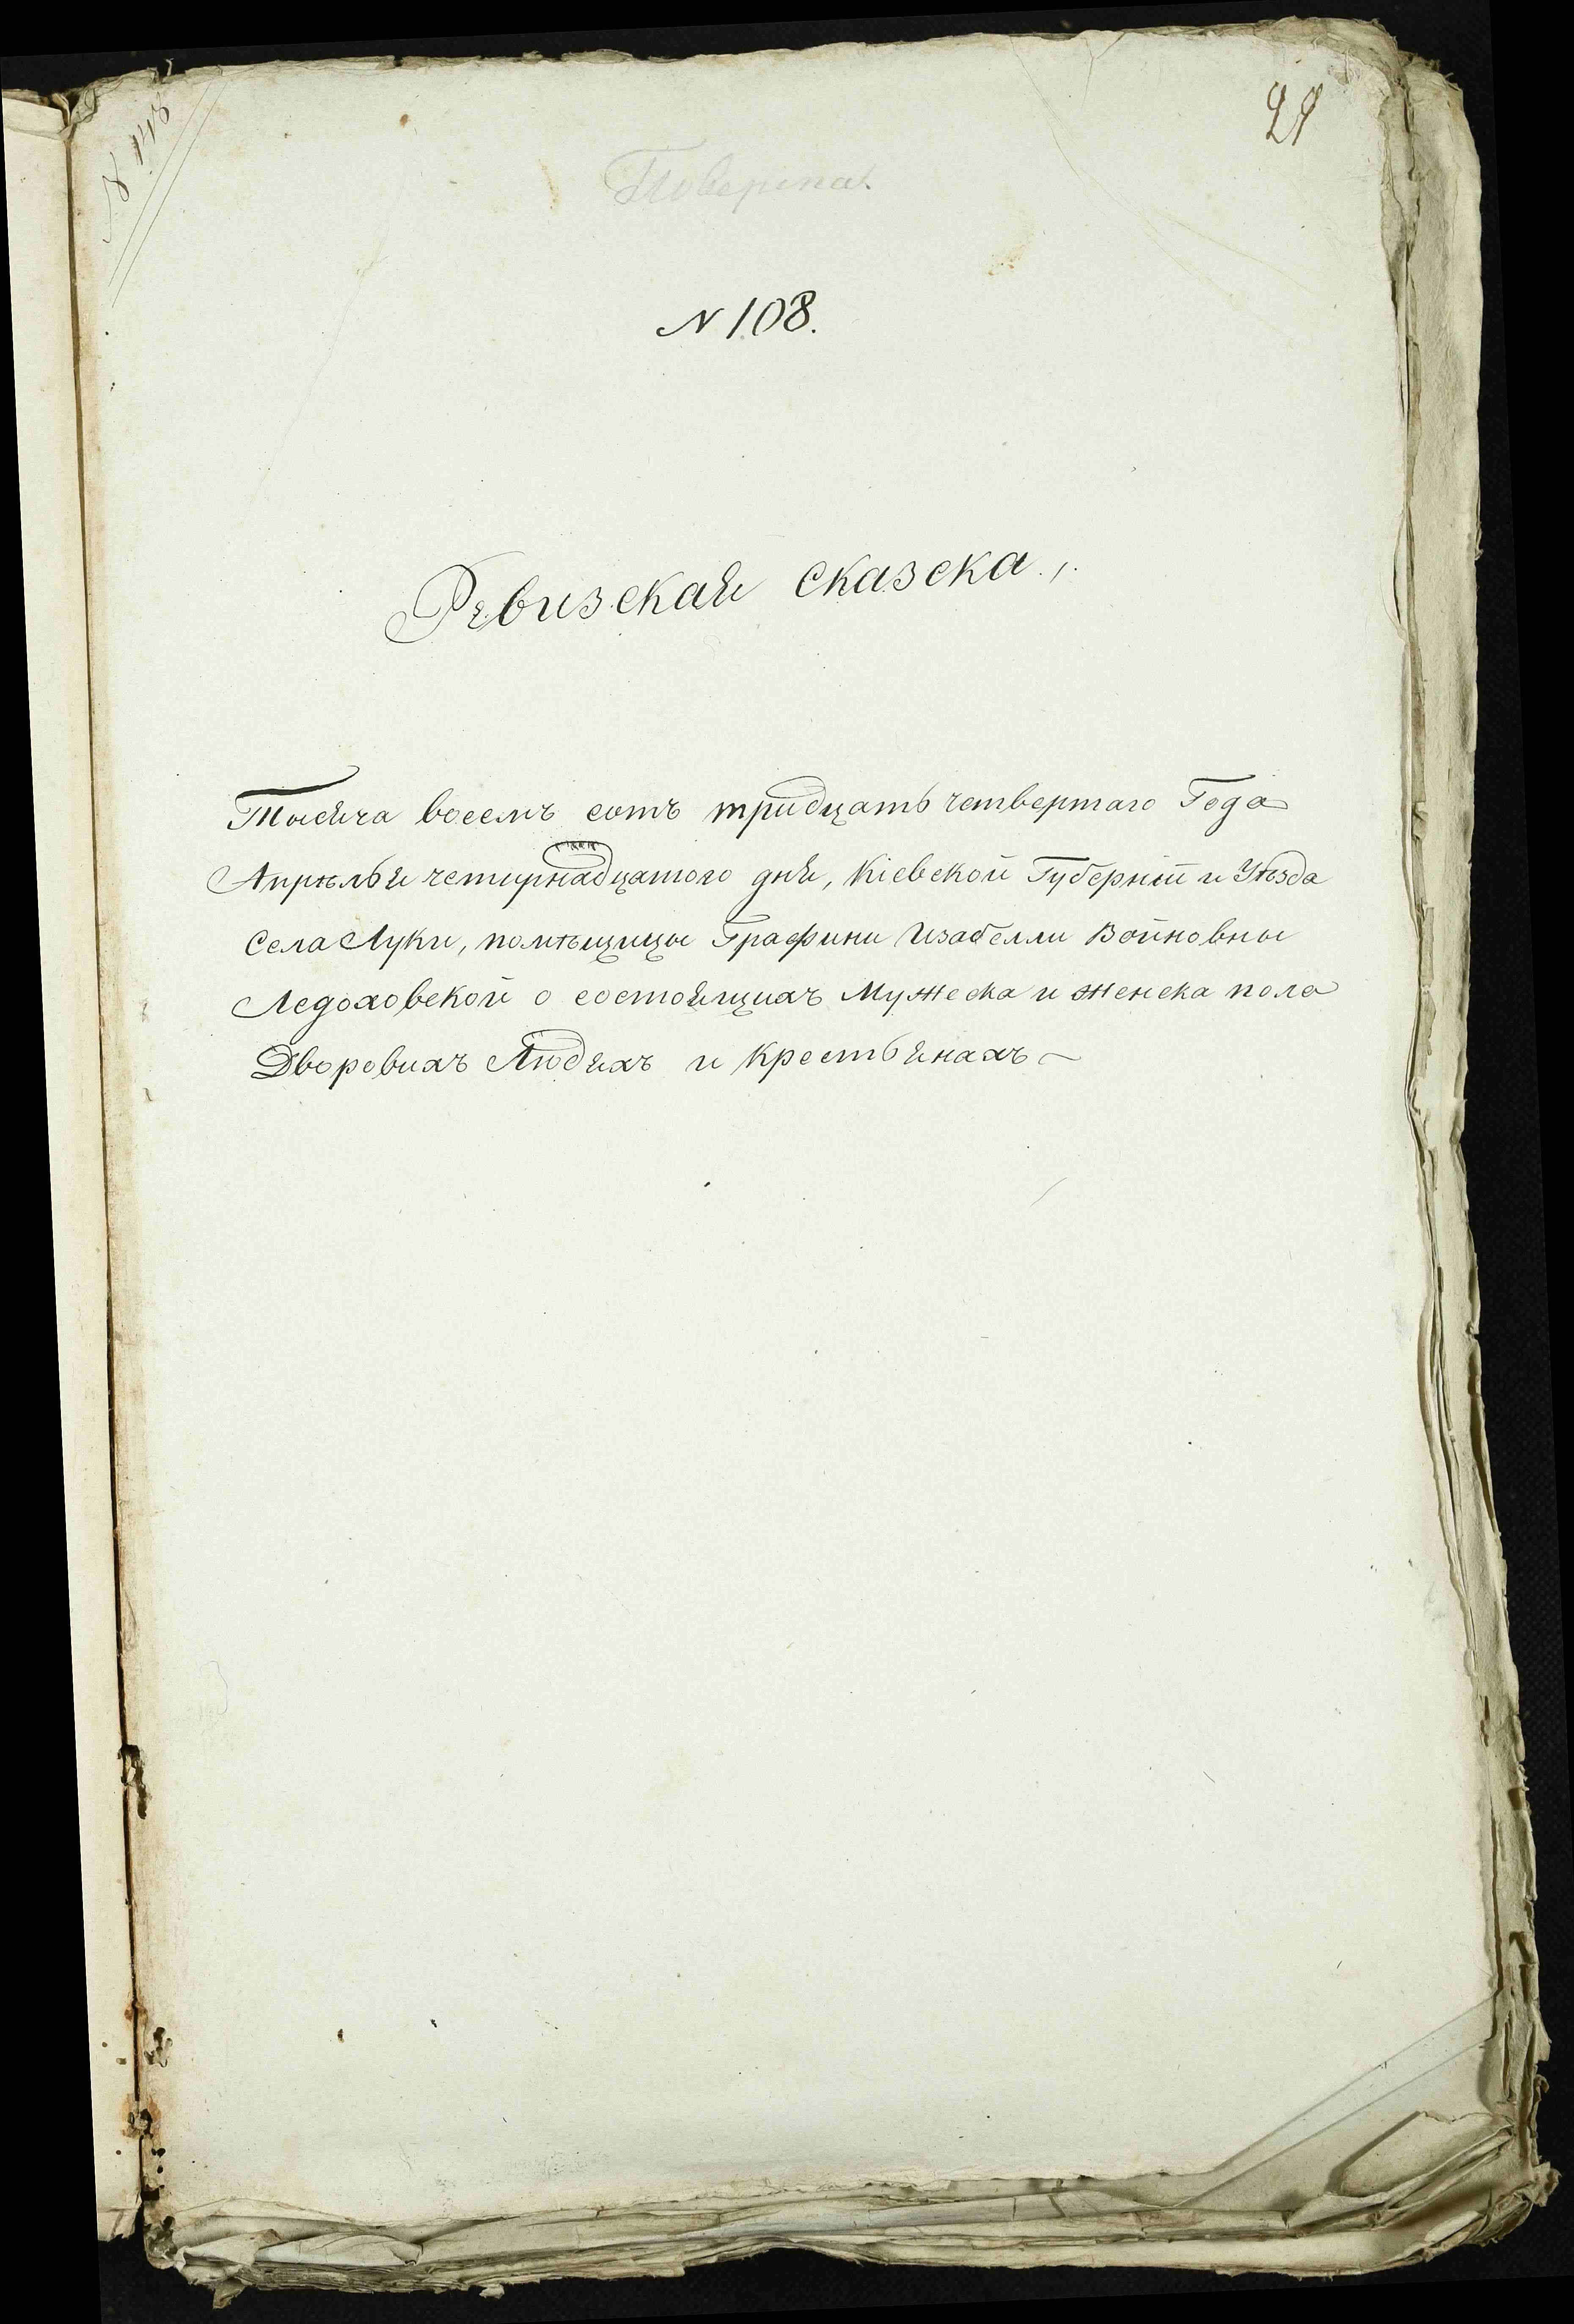 № 148
Поверена
№ 108.
Ревизская сказска.
Тысяча восемъ сотъ тридцать четвертаго Года
Апрѣлья четирнадцатого дня, Кіевской Губерніи и Уѣзда
Села Луки, помѣщицы Графини Изабелли Войновны
Ледоховской о состоящихъ Мужеска и женска пола
Дворовихъ Людяхъ и Крестьянахъ